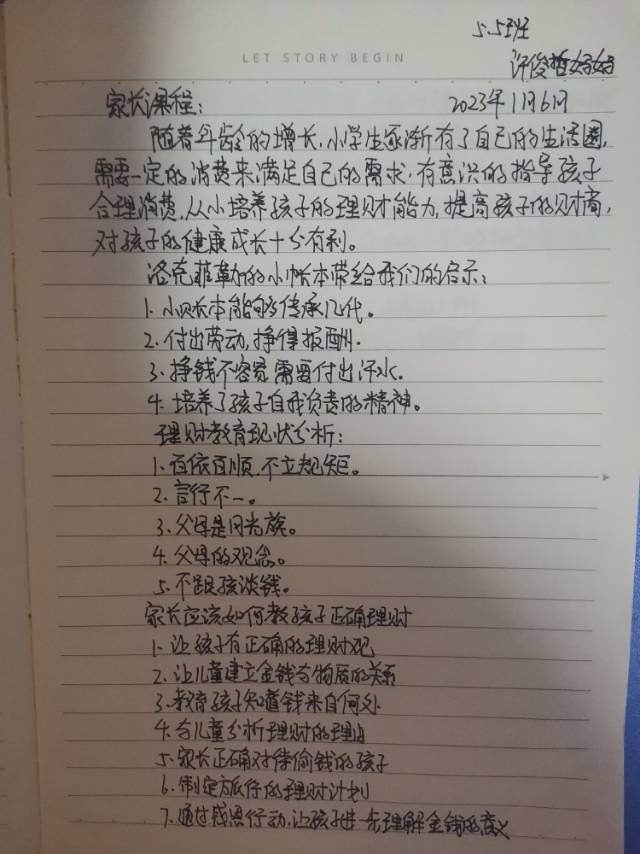 5.5班
LET STORY BEGIN
许俊哲妈妈
家长课程: 2023年11月6日
随着年龄的增长,小学生逐渐有了自己的生活圈,
需要一定的消费来满足自己的需求,有意识的指导孩子
合理消费,从小培养孩子的理财能力,提高孩子的财商,
对孩子的健康成长十分有利。
洛克菲勒的小帐本带给我们的启示:
1.小账本能够传承几代。
2.付出劳动,挣得报酬.
3.挣钱不容易需要付出汗水.
4.培养了孩子自我负责的精神。
理财教育现状分析:
1.百依百顺.不立规矩。
2.言行不一。
3.父母是月光族。
4.父母的观念。
5.不跟孩谈钱。
家长应该如何教孩子正确理财
1.让孩子有正确的理财观
2.让儿童建立金钱与物质的关系
3.教育孩子知道钱来自何处
4.与儿童分析理财的理由
5.家长正确对待偷钱的孩子
6.制定旅行的理财计划
7.通过感恩行动,让孩子进一步理解金钱的意义